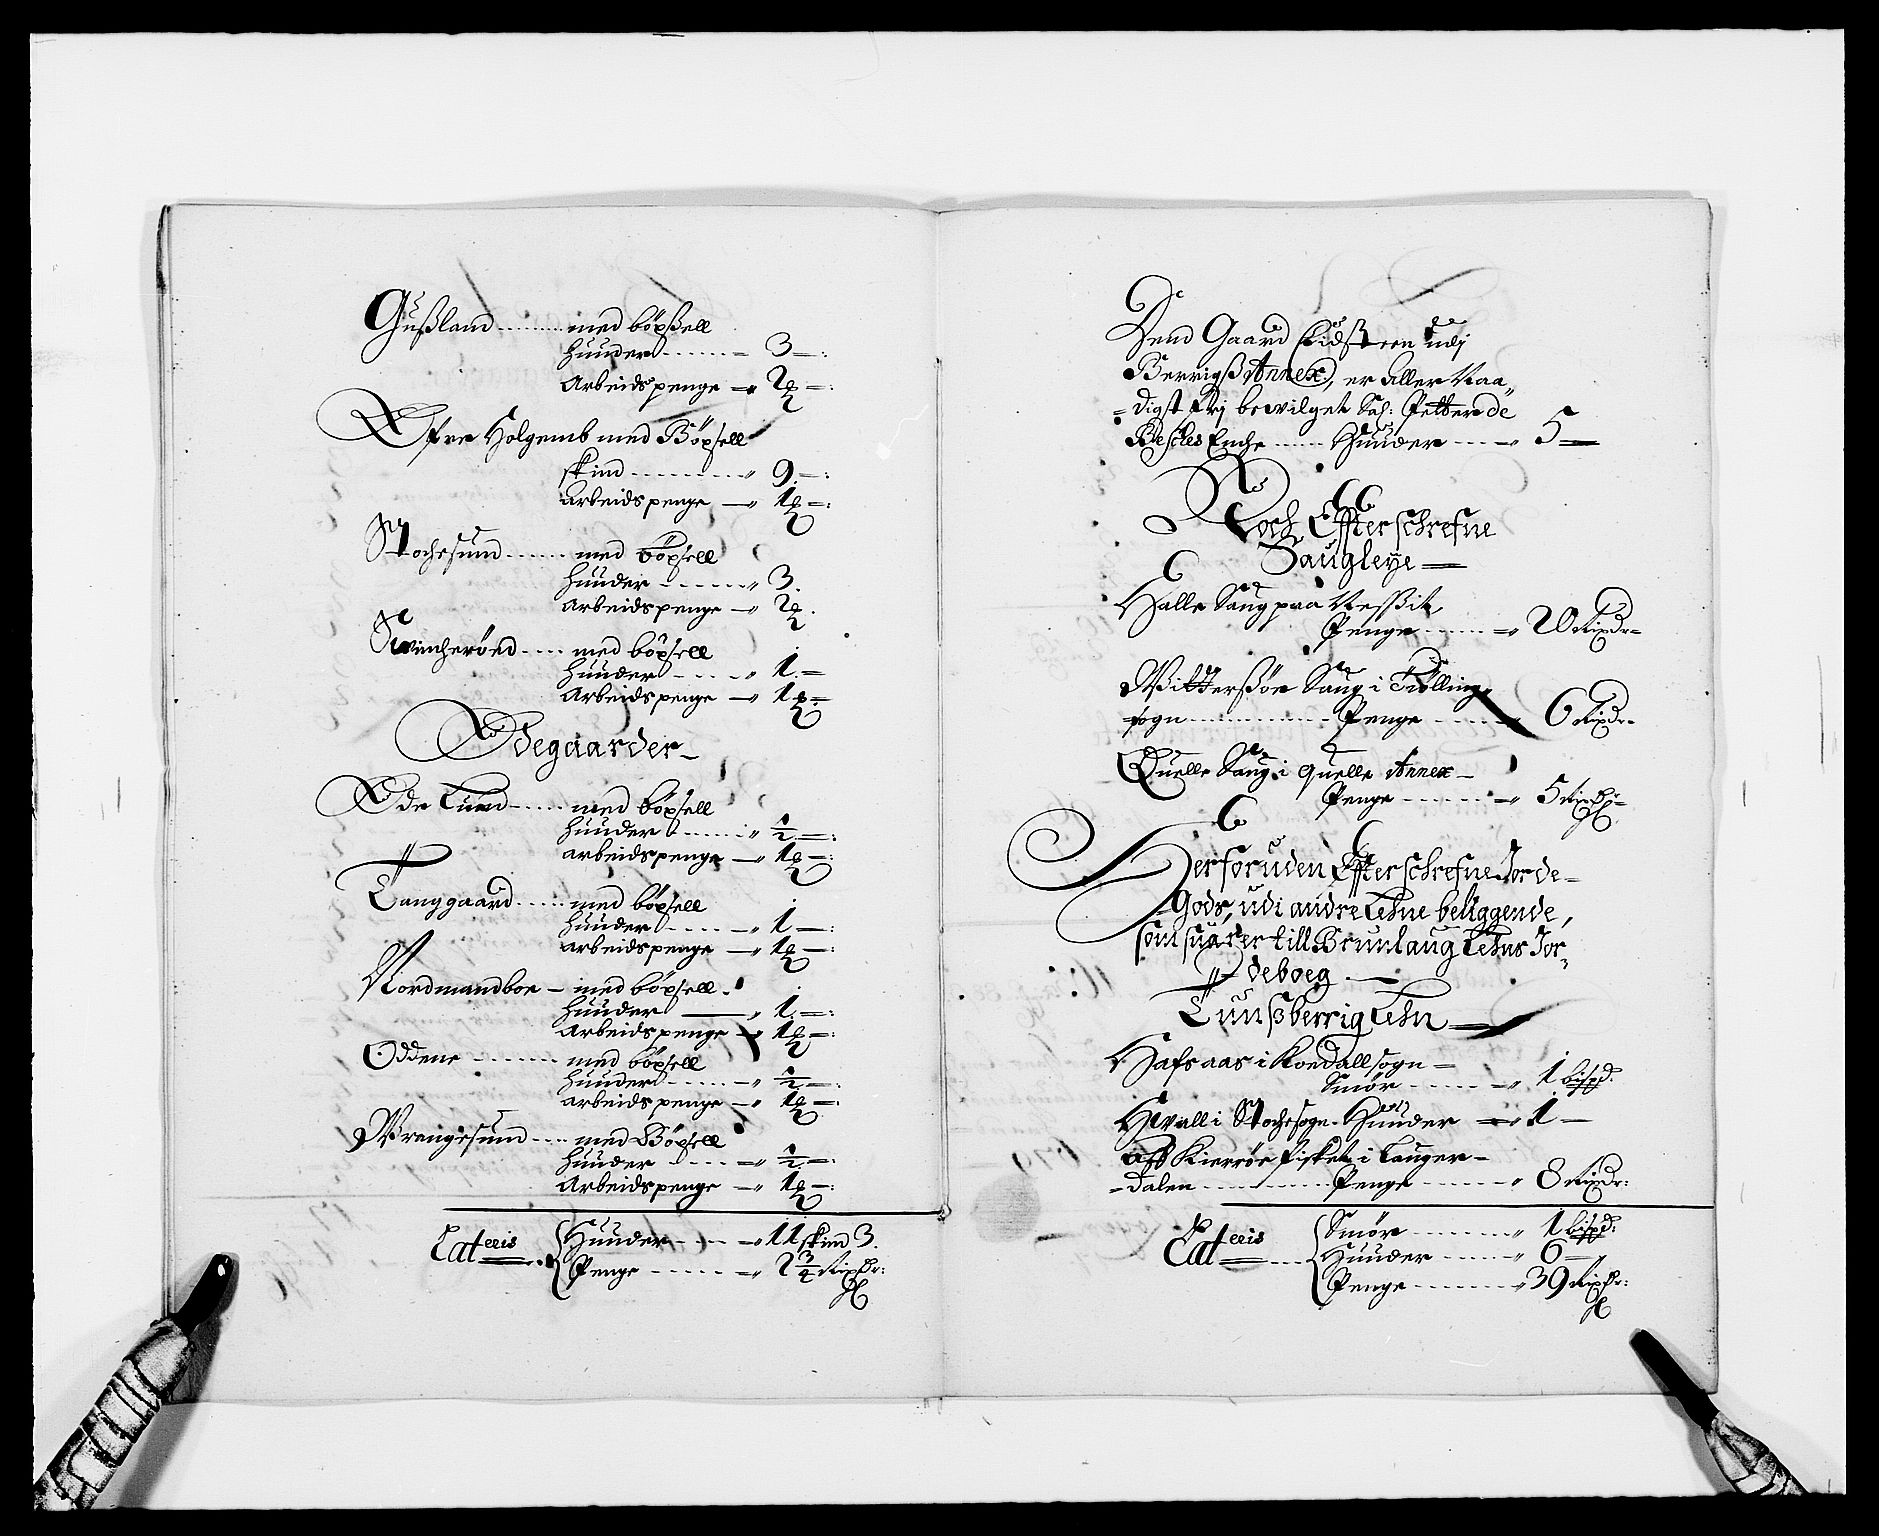 Gußland ........ med böxßell
Huuder ....... 3 —:
Arbeidspenge — 2
Øfre Holgemb med Böxsell
skind ......... 9 —:
arbeidspenge — 1
Stochesund ...... med böxsell
Huuder ...... 3.
arbeidspenge — 2
Svincheröed .... med böxsell
Huuder ..... 1 —
Arbeidspenge — 1
Ødegaarder —
Øde Lund ..... med böxsell
Huuder ...... ½ —:
arbeidspenge — 1
Langgaard ..... med böxsell
Huuder ..... 1 —:
arbeidspenge — 1
Nordmandboe — med böxsell
Huuder — 1 —:
arbeidspenge — 1
Oddene ........ med böxsell
Huuder ..... ½ —:
arbeidspenge — 1
Wrangesund .... med Böxsell
Huuder .... ½ —:
Arbeidspenge — 1
Lateris Huuder .... 11 skind 3.
Penge ..... 2¾ Rixdr:
Dend Gaard Eidsteen udj
Berrigß Annex, er Aller Naa„
digst frj bevilget Sal: Petter de
Besches Enche ..... Huuder .... 5 —
Noch Effterschrefne
Saugleye —
Halle Saug paa Neßßit,
Penge ...... 20 Rixdr —
Witterßöe Saug i Tiölling
sogn ........... Penge ..... 6 Rixdr —
Quelle Saug i Quelle Annex —
Penge ....... 5 Rixdr —
Herforuden Effterschrefne Jorde-
Gods, udi andre Lehne beliggende,
som suarer till Brunlaug Lehns Jor-
deboeg —
Tunßberrig Lehn —
Hafsaas i Koedall sogn —
Smör ...... 1 bispd:
Hvall i Stochesogn. Huuder — 1 —
Aff Kierröe fisket i Lauger-
dalen ........... Penge ...... 8 Rixdr:
Lateris Smör ....... 1 bispd:
Huuder ..... 6 —
Penge ....... 39 Rixdr: